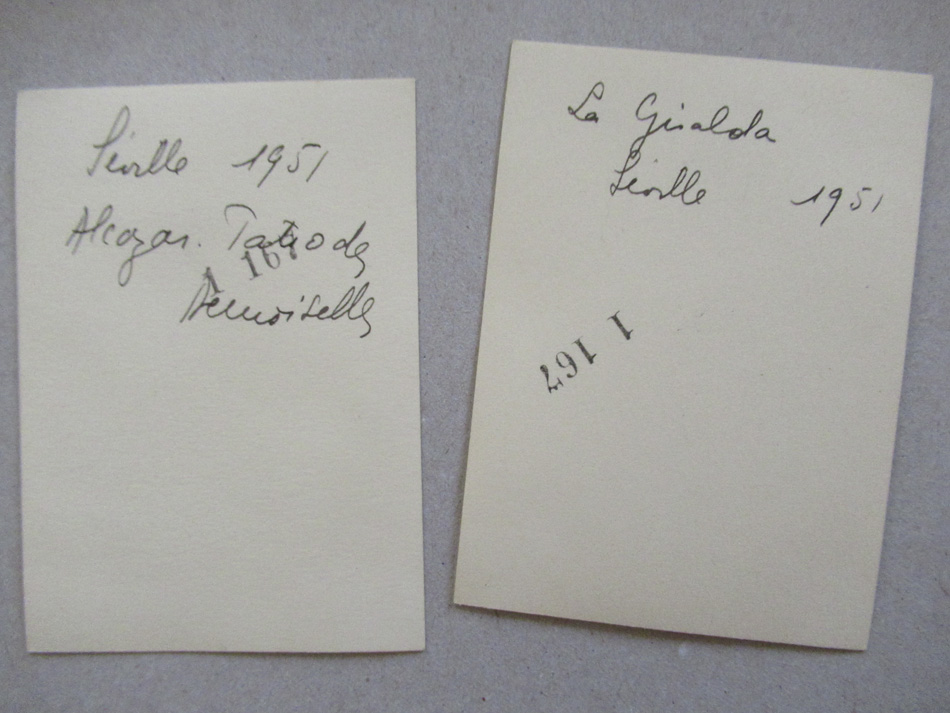 Séville 1951
Alcazar. Patio des
Demoiselles
1 167
La Giralda
Séville 1951
1 167